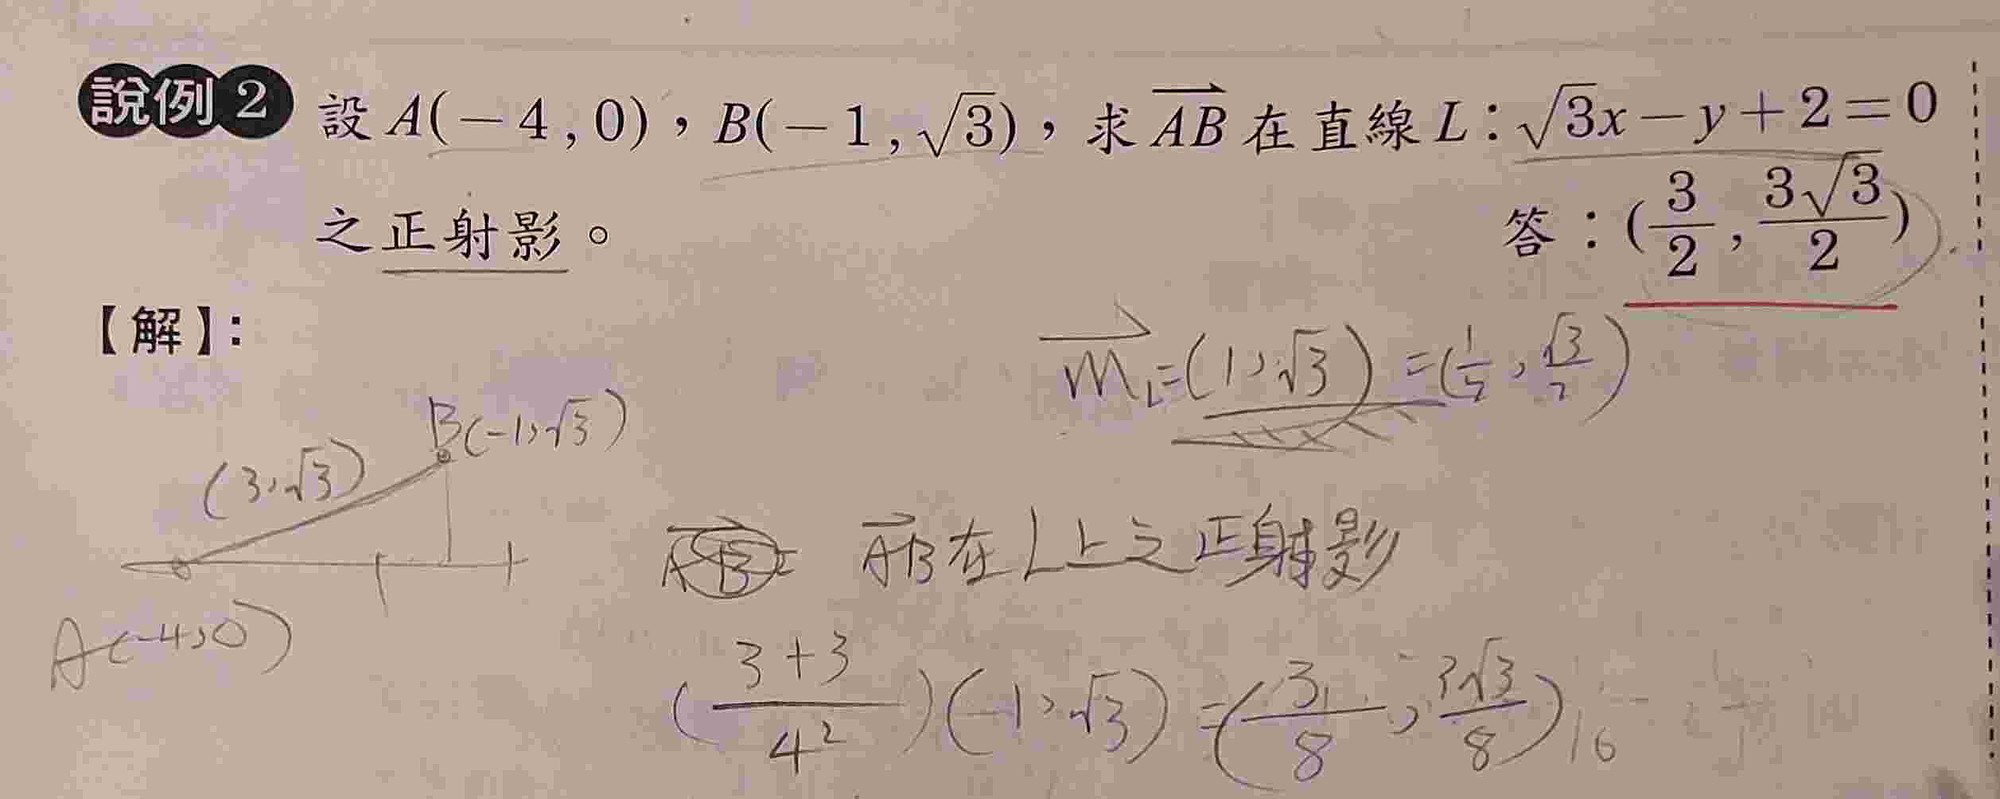 說例2 設 A(-4, 0),B(-1, √3),求 \overrightarrow{AB} 在直線 L:√3x-y+2=0
之正射影。 答:(3/2, 3√3/2)
【解】:
\overrightarrow{m}_L=(1,√3)=(1/2,√3/2)
B(-1,√3)
(3,√3)
A(-4,0)
\overrightarrow{AB}在L上之正射影
((3+3)/4²)(1,√3)=(3/8,3√3/8)
16